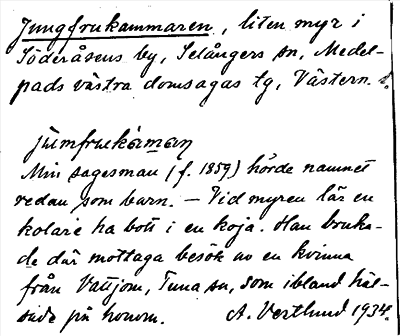 Jungfrukammaren, liten myr i
Söderåsens by, Selångers sn, Medel-
pads västra domsagas tg, Västern. l.
jùmfruk̀aman
Min sagesman (f. 1859) hörde namnet
redan som barn. – Vid myren lär en
kolare ha bott i en koja. Han bruka-
de där mottaga besök av en kvinna
från Vattjom, Tuna sn, som ibland häl-
sade på honom. A. Vestlund 1934.